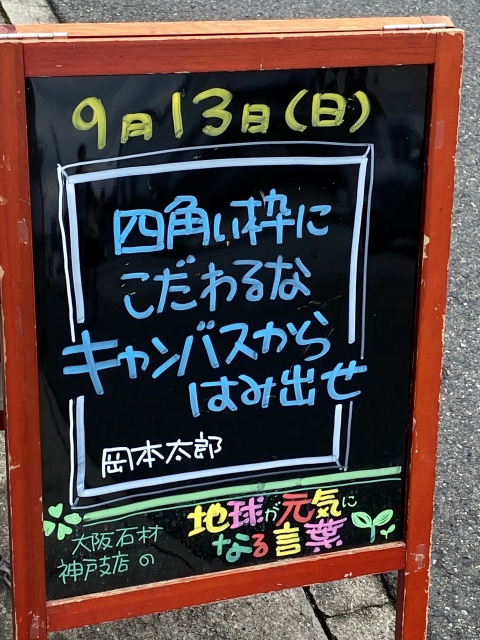 9月13日(日)
四角い枠に
こだわるな
キャンバスから
はみ出せ
岡本太郎
大阪石材
神戸支店の
地球が元気に
なる言葉